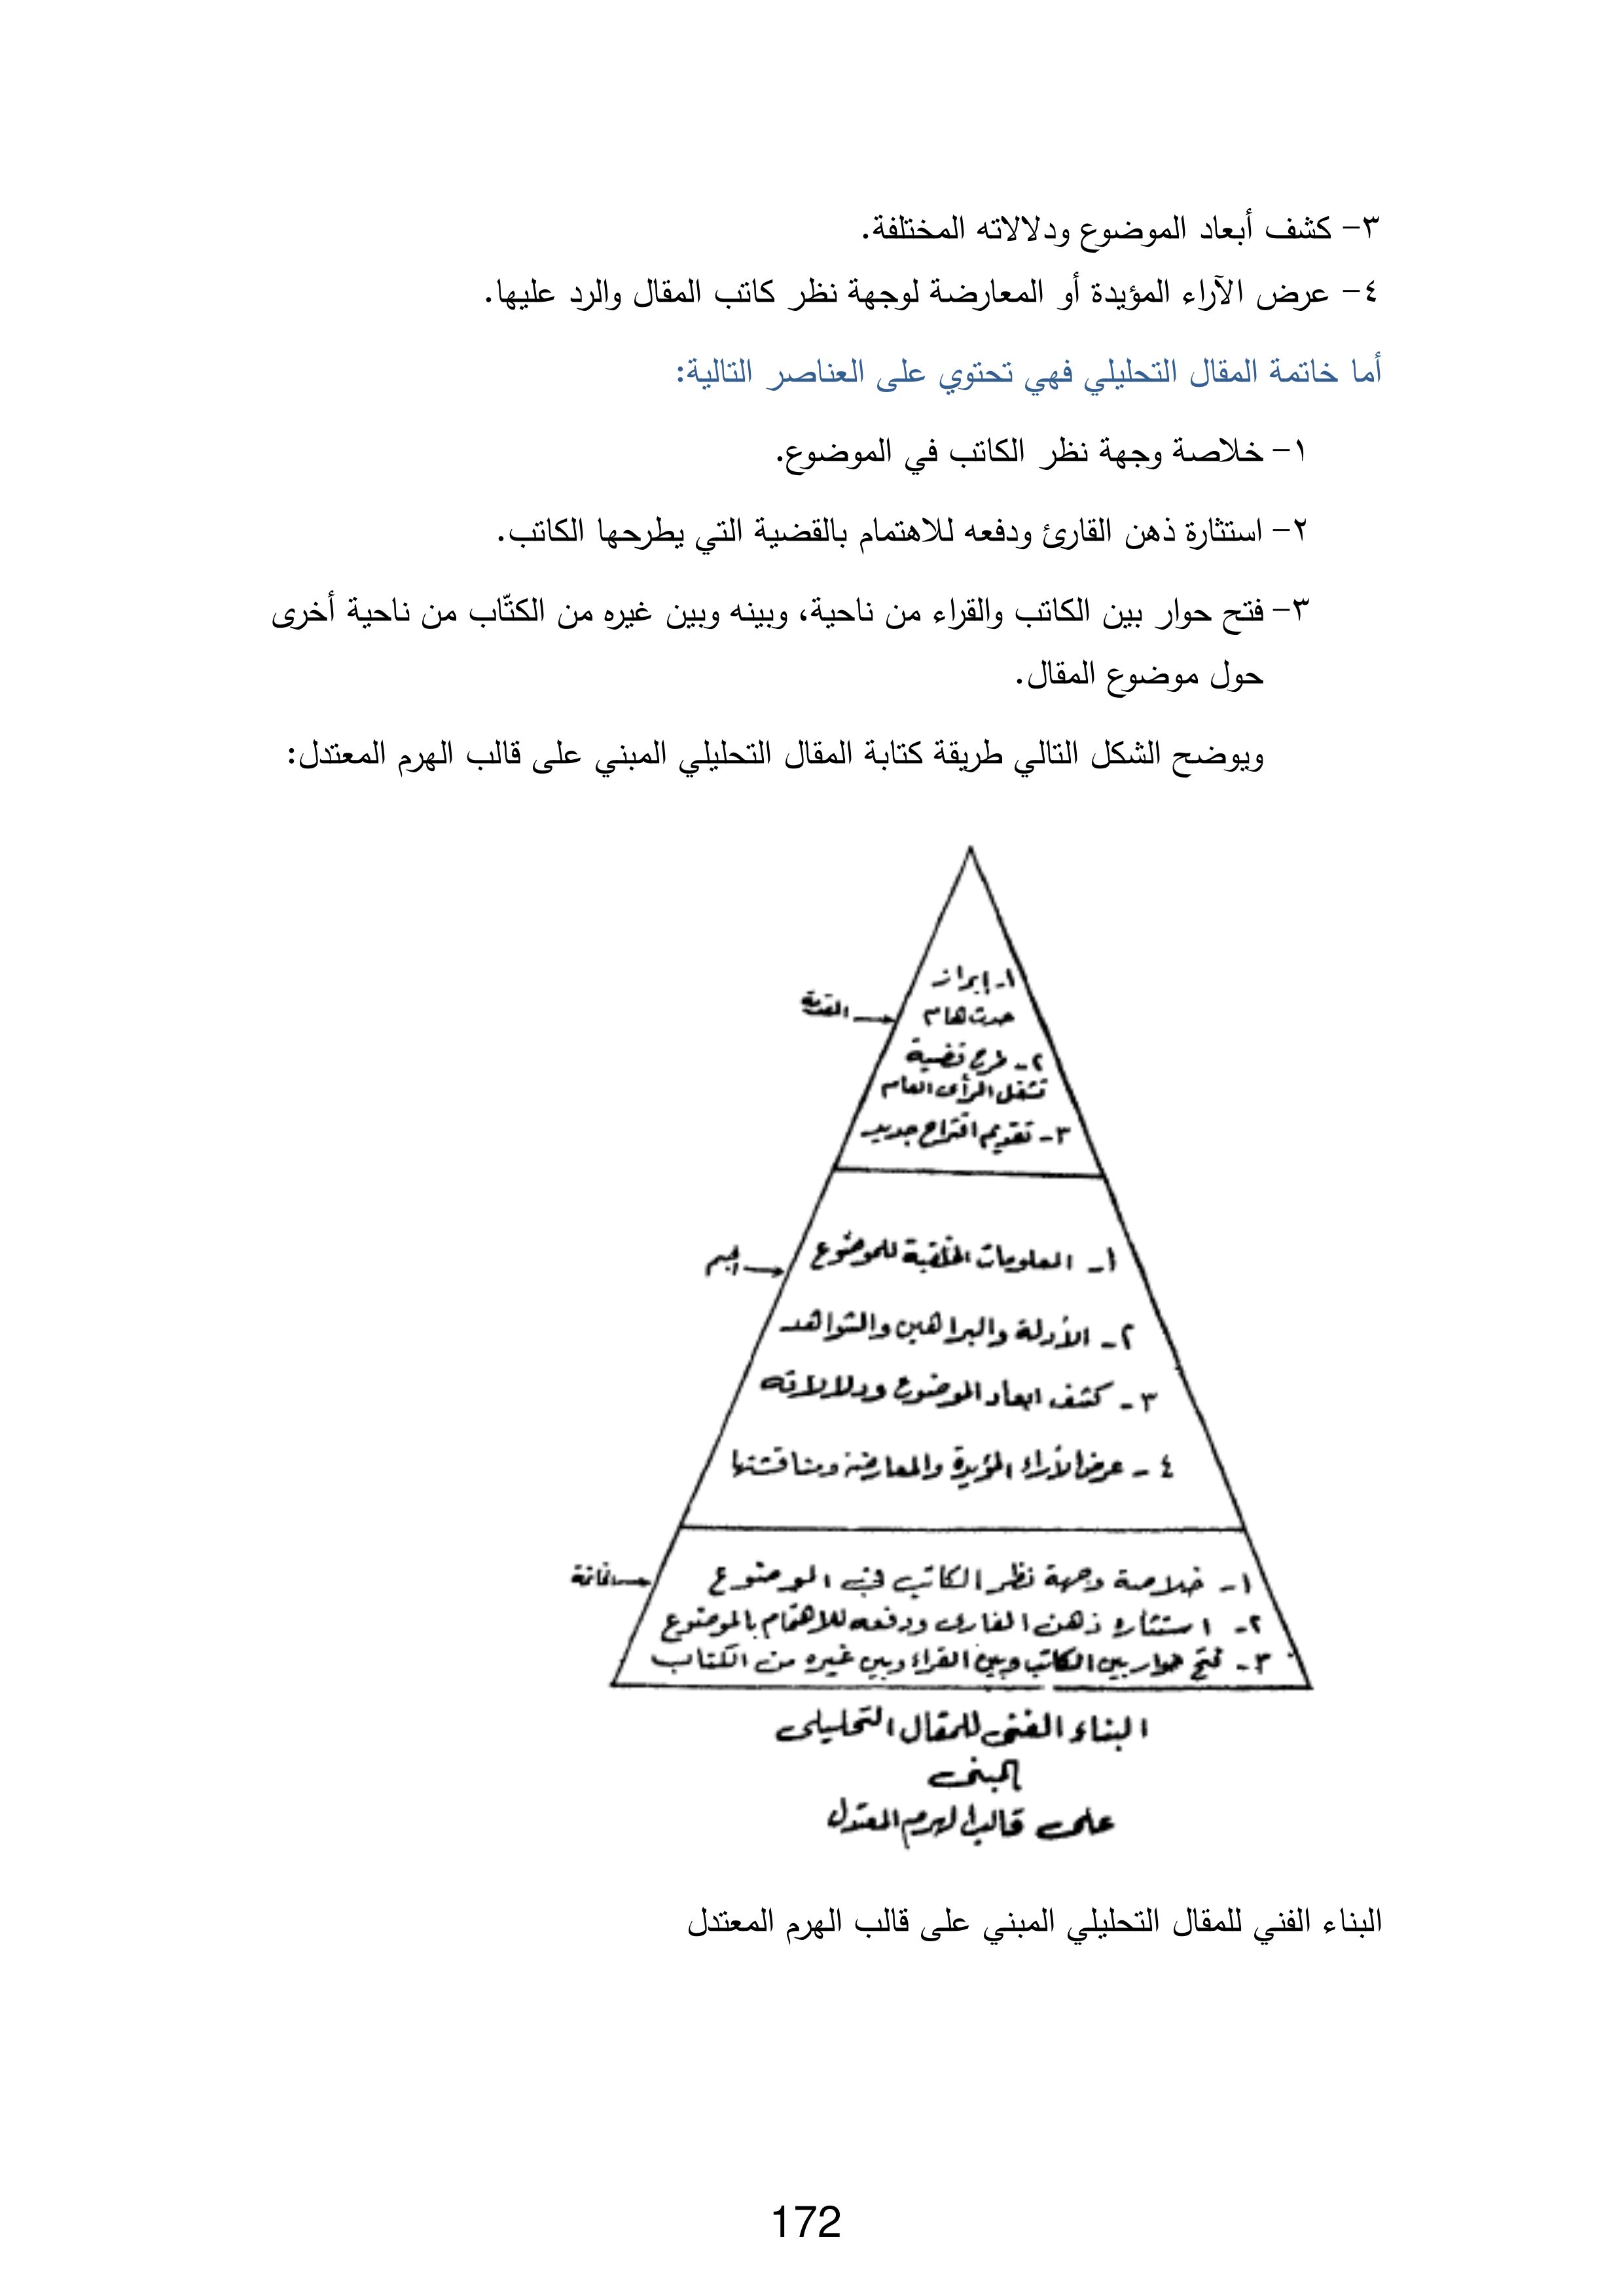 ٣- كشف أبعاد الموضوع ودلالاته المختلفة.
٤- عرض الآراء المؤيدة أو المعارضة لوجهة نظر كاتب المقال والرد عليها.
أما خاتمة المقال التحليلي فهي تحتوي على العناصر التالية:
١- خلاصة وجهة نظر الكاتب في الموضوع.
٢- استثارة ذهن القارئ ودفعه للاهتمام بالقضية التي يطرحها الكاتب.
٣- فتح حوار بين الكاتب والقراء من ناحية، وبينه وبين غيره من الكتّاب من ناحية أخرى
حول موضوع المقال.
ويوضح الشكل التالي طريقة كتابة المقال التحليلي المبني على قالب الهرم المعتدل:
١- إبراز
حدث هام
المقدمة
٢- طرح قضية
تشغل الرأى العام
٣- تقويم اقتراح جديد
١- المعلومات الخلفية للموضوع
الجسم
٢- الأدلة والبراهين والشواهد
٣- كشف ابعاد الموضوع ودلالاته
٤- عرض الأراء المؤيدة والمعارضة ومناقشتها
١- خلاصة وجهة نظر الكاتب فى الموضوع
الخاتمة
٢- استثارة ذهن القارى ودفعه للاهتمام بالموضوع
٣- فتح حوار بين الكاتب وبين القراء وبين غيره من الكتاب
البناء الفنى للمقال التحليلى
المبنى
على قالب الهرم المعتدل
البناء الفني للمقال التحليلي المبني على قالب الهرم المعتدل
172